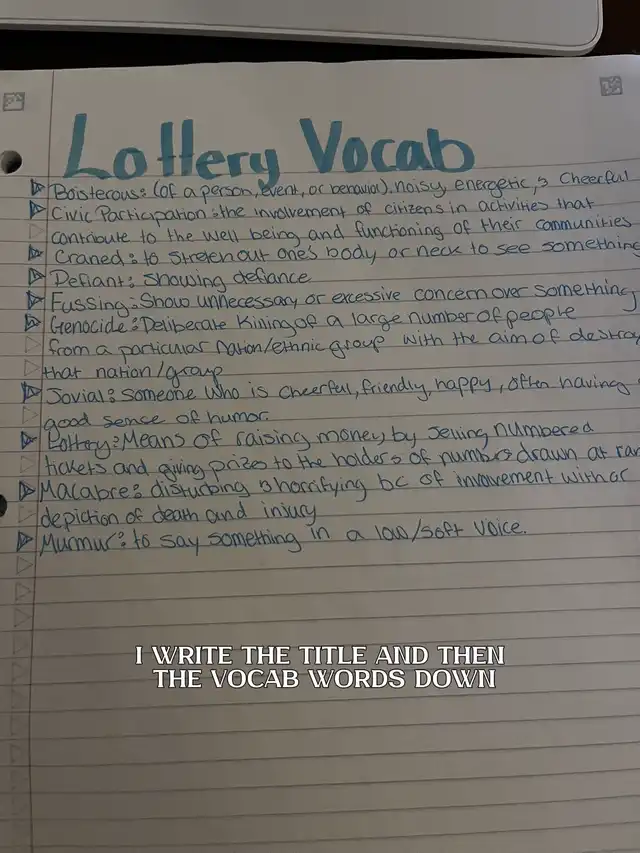 Lottery Vocab
Boisterous: (of a person, event, or behavior), noisy, energetic, & cheerful
Civic Participation: the involvement of citizens in activities that
contribute to the well being and functioning of their communities
Craned: to stretch out one's body or neck to see something
Defiant: Showing defiance
Fussing: Show unnecessary or excessive concern over something
Genocide: Deliberate Killing of a large number of people
from a particular nation/ethnic group with the aim of destroy
that nation/group
Jovial: Someone who is cheerful, friendly, happy, often having
good sense of humor
Lottery: Means of raising money by selling numbered
tickets and giving prizes to the holders of numbers drawn at ran
Macabre: disturbing & horrifying bc of involvement with or
depiction of death and injury
Murmur: to say something in a low/soft voice.
I WRITE THE TITLE AND THEN
THE VOCAB WORDS DOWN